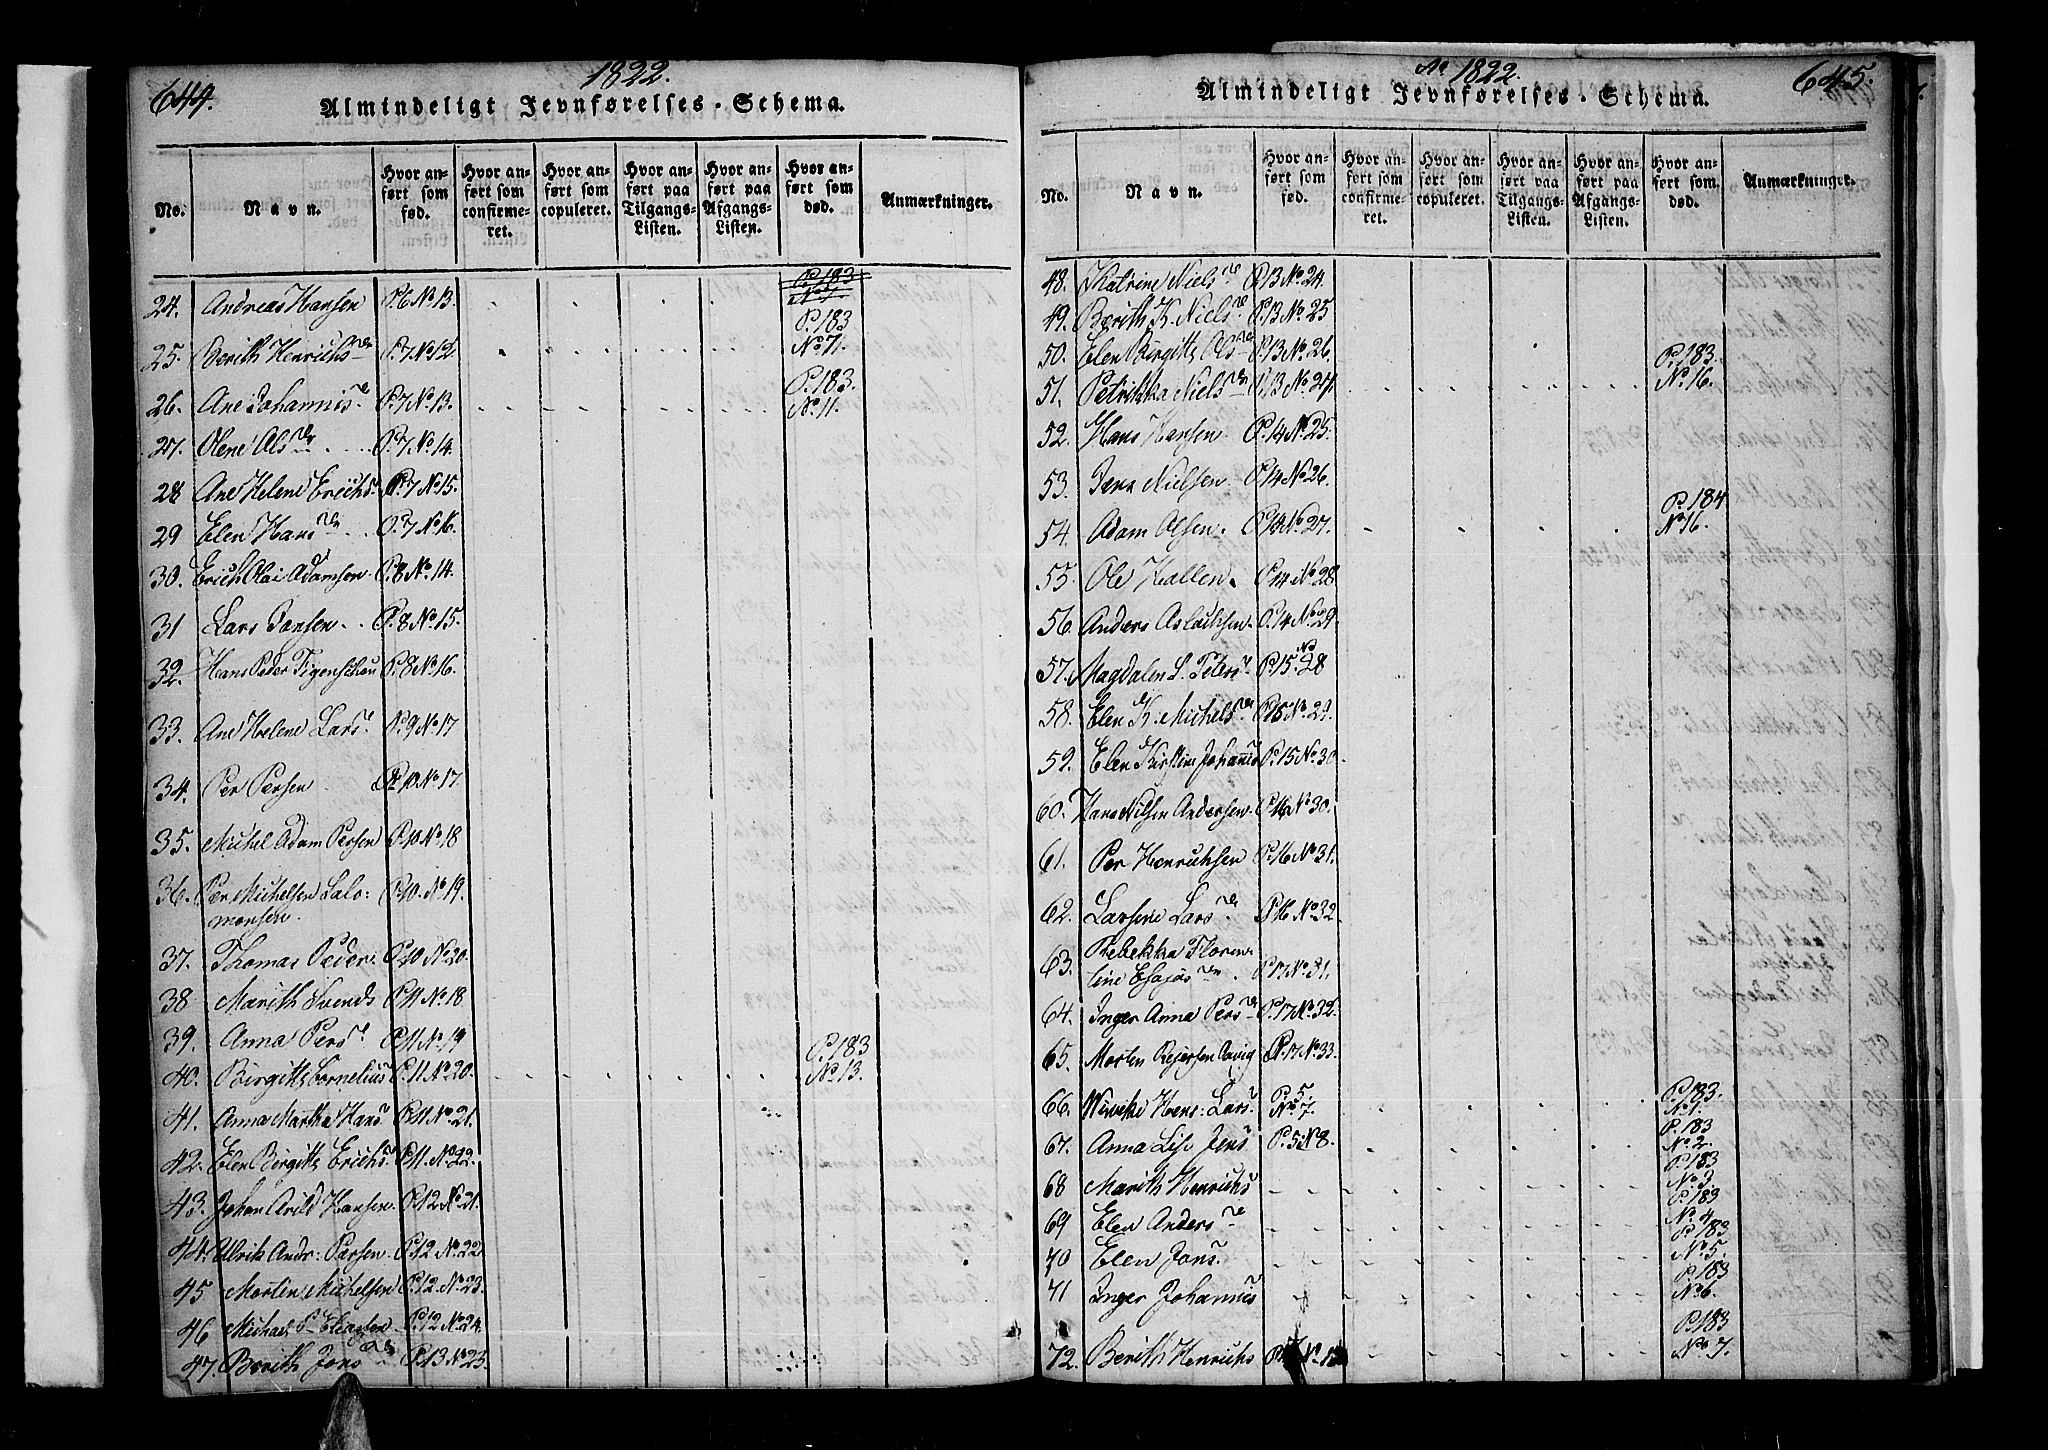 644.
1822.
Almindeligt Jevnførelses-Schema.
No.
Navn.
Hvor anført som fød.
Hvor anført som confirmeret.
Hvor anført som copuleret.
Hvor anført paa Tilgangs-Listen.
Hvor anført paa Afgangs-Listen.
Hvor anført som død.
Anmærkninger.
24. Andreas Hansen P.6 No.13. P.183 No.7
25. Berith Henrichsdr P.7 No.12 P.183 No.7.
26. Ane Johannisdr P.7 No.13. P.183. No.11.
27. Olene Olsdr P.7. No.14.
28 Ane Helene Erichs P.7 No.15.
29 Elen Hansdr P.7 No.16.
30. Erich Olai Adamsen P.8 No.14.
31 Lars Jonsen P.8 No.15.
32. Hans Peder Figenschau P.8 No.16.
33. Ane Helene Lars P.9 No.17
34. Per Persen P.10 No.17.
35. Michel Adam Persen P.10 No.18
36. Per Michelsen Salo:
monsen. P.10. No.19.
37. Thomas Peders P.10 No.20.
38 Marith Svends P.11 No.18
39. Anna Persdr P.11 No.19
40. Birgitte Cornelius P.11 No.20. P.183 No.13.
41. Anna Martha Hans P.11 No.21.
42. Elen Birgitte Erichs P.11. No.22.
43. Johan Arild Hansen. P.12 No.21.
44. Ulrik Andr: Persen. P.12 No.22
45 Morten Michelsen P.12. No.23.
46 Michael P. Eliasen P.12 No.24.
47. Berith Jonsdr P.13 No.23
Ao 1822.
645.
Almindeligt Jevnførelses-Schema.
No.
Navn.
Hvor anført som fød.
Hvor anført som confirmeret.
Hvor anført som copuleret.
Hvor anført paa Tilgangs-Listen.
Hvor anført paa Afgangs-Listen.
Hvor anført som død.
Anmærkninger.
48. Katrine Nielsdr P.13 No.24.
49. Berith K. Nielsdr P.13 No.25
50. Elen Birgitte Olsdr P.13 No.26.
51. Petrikka Nielsdr P.13 No.27. P.183. No.16.
52. Hans Hansen P.14 No.25.
53. Jens Nielsen P.14 No.26.
54. Adam Olsen. P.14 No.27. P.184 No.16.
55. Ole Hallen. P.14 No.28
56. Anders Aslachsen. P.14 No.29.
57. Magdalen S. Peters P.15. No.28
58. Elen K. Michelsdr P.15 No.29.
59. Elen Kirstine Johannis P.15 No.30.
60. Hans Nilsen Andersen P.16 No.30.
61. Per Henrichsen P.16 No.31.
62. Larsine Larsdr P.16 No.32.
63. Rebekka Floren
tine Esajasdr P.17 No.31.
64. Inger Anna Persdr P.17 No.32.
65. Morten Rejersen Ravig P.17 No.33.
66. Wivike Hens: Lars P.5. No.7. P.183. No.1.
67. Anna Lise Jens P.5 No.8. P.183 No.2.
68 Marith Henrichs P.183 No.3
69 Elen Andersdr P.183 No.4
70 Elen Jons P.183 No.5.
71 Inger Johannis P.183 No.6.
72. Berith Henrichs P.183 No.7.